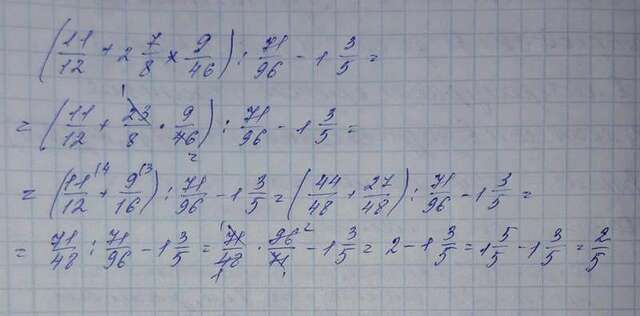 (11/12 + 2 7/8 × 9/46) : 71/96 - 1 3/5 =
= (11/12 + 23/8 · 9/46) : 71/96 - 1 3/5 =
= (11/12 + 9/16) : 71/96 - 1 3/5 = (44/48 + 27/48) : 71/96 - 1 3/5 =
= 71/48 : 71/96 - 1 3/5 = 71/48 · 96/71 - 1 3/5 = 2 - 1 3/5 = 1 5/5 - 1 3/5 = 2/5